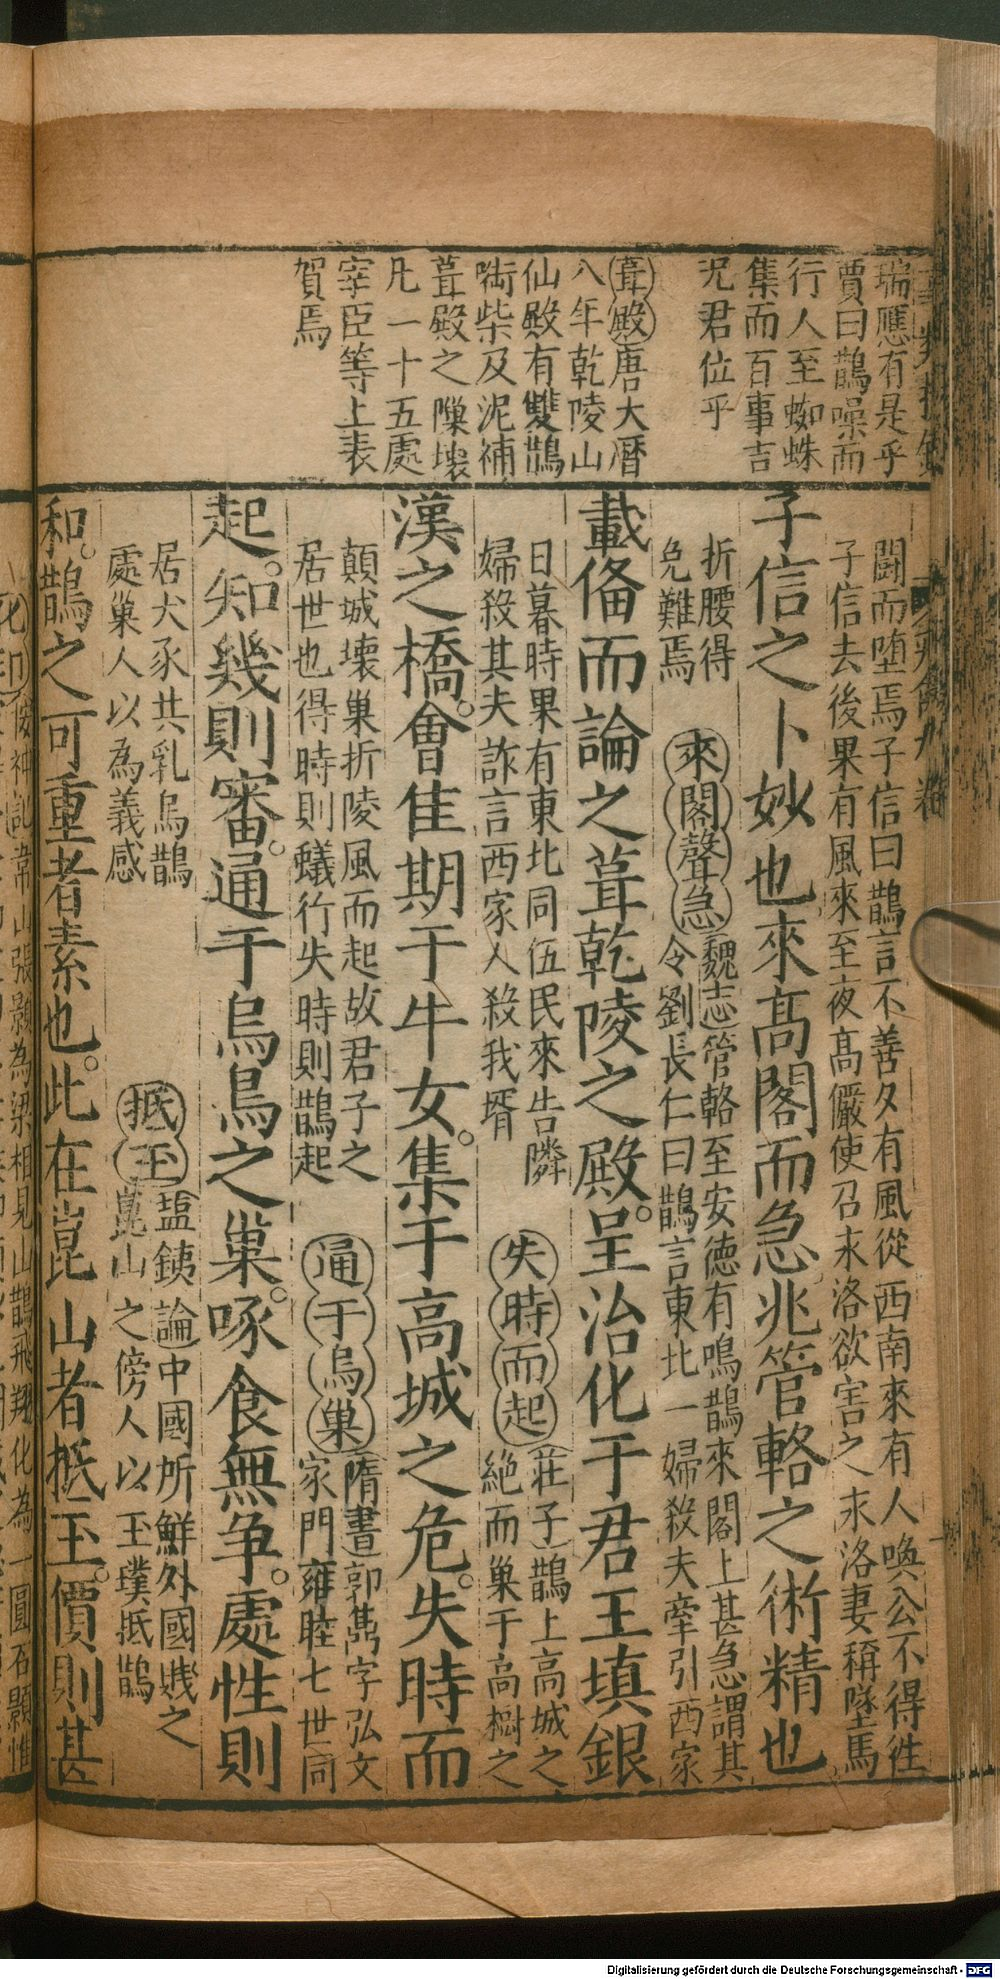 瑞應有是乎
賈曰鵲噪而
行人至蜘蛛
集而百事吉
况君位乎
葺殿唐大曆
八年乾陵山
仙殿有雙鵲
啣柴及泥補
葺殿之隟壊
凡一十五處
宰臣等上表
賀焉
闘而堕焉子信曰鵲言不善夕有風從西南來有人喚公不得徃
子信去後果有風來至夜高儼使召永洛欲害之永洛妻稱墜馬
子信之卜妙也來髙閣而急兆管輅之術精也
折腰得
免難焉
來閣聲急
魏志管輅至安徳有鳴鵲來閣上甚急謂其
令劉長仁曰鵲言東北一婦殺夫牽引西家
載偹而論之葺乾陵之殿。呈治化于君王填銀
日暮時果有東北同伍民來告隣
婦殺其夫詐言西家人殺我壻
失時而起
莊子鵲上高城之
絶而巢于高樹之
漢之橋。會佳期于牛女。集于高城之危。失時而
顛城壊巢折陵風而起故君子之
居世也得時則蟻行失時則鵲起
通于烏巢
隋書郭雋字弘文
家門雍睦七世同
起。知幾則審。通于烏鳥之巢。啄食無争。處性則
居犬豕共乳烏鵲
處巢人以為義感
抵玉
塩鉄論中國所鮮外國賎之
崑山之傍人以玉璞抵鵲
和。鵲之可重者素也。此在崑山者抵玉。價則甚
Digitalisierung gefördert durch die Deutsche Forschungsgemeinschaft - DFG